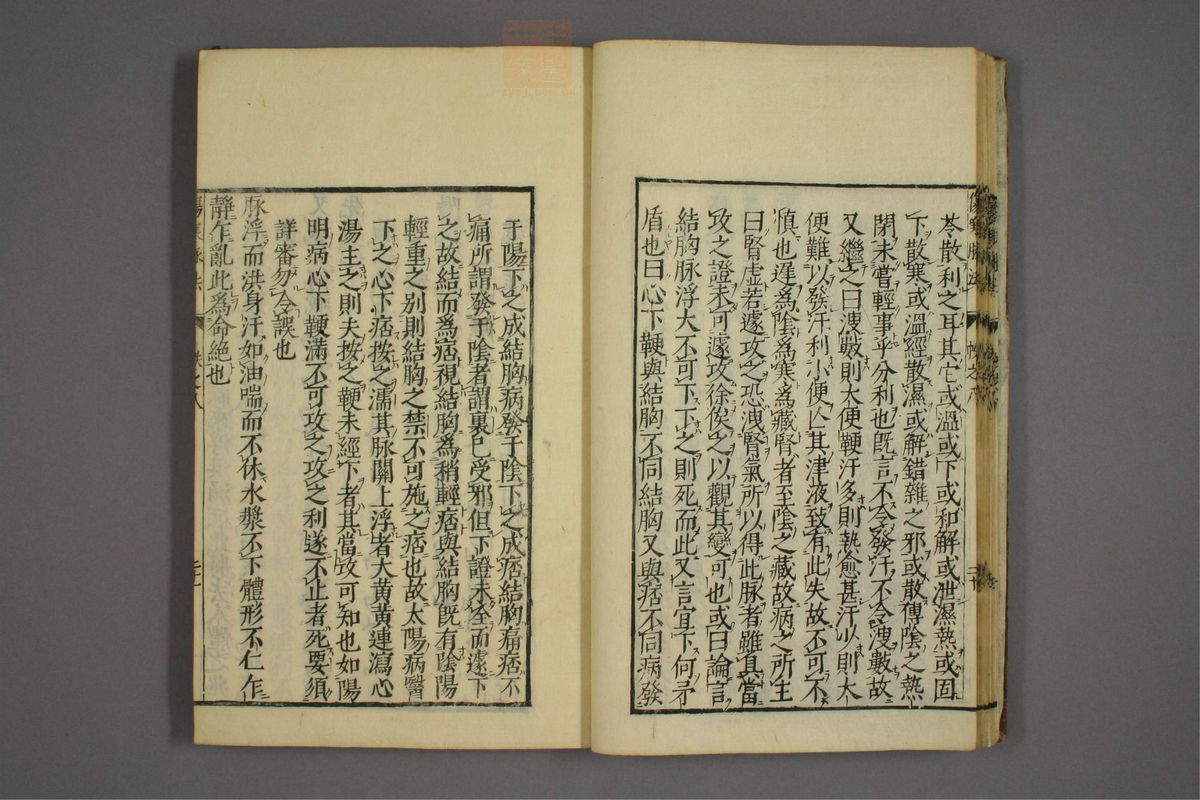 苓散利之耳其它或溫或下或和解或泄濕熱或固
下散寒或溫經散濕或解錯雜之邪或散傳陰之熱
閉未嘗輕事乎分利也既言不令發汗不令溲數故
又繼之曰溲數則大便鞕汗多則熱愈甚汗少則大
便難以發汗利小便亾其津液致有此失故不可不
慎也遲爲陰爲寒爲藏腎者至陰之藏故病之所主
曰腎虛若遽攻之恐洩腎氣所以得此脉者雖具當
攻之證未可遽攻徐俟之以觀其變可也或曰論言
結胸脉浮大不可下下之則死而此又言宜下何矛
盾也曰心下鞕與結胸不同結胸又與痞不同病發
于陽下之成結胸病發于陰下之成痞結胸痛痞不
痛所謂發于陰者謂裏已受邪但下證未全而遽下
之故結而爲痞視結胸爲稍輕痞與結胸既有陰陽
輕重之别則結胸之禁不可施之痞也故太陽病醫
下之心下痞按之濡其脉關上浮者大黃黃連瀉心
湯主之則夫按之鞕未經下者其當攻可知也如陽
明病心下鞕滿不可攻之攻之利遂不止者死要須
詳審勿令誤也
脉浮而洪身汗如油喘而不休水漿不下體形不仁乍
靜乍亂此爲命絶也